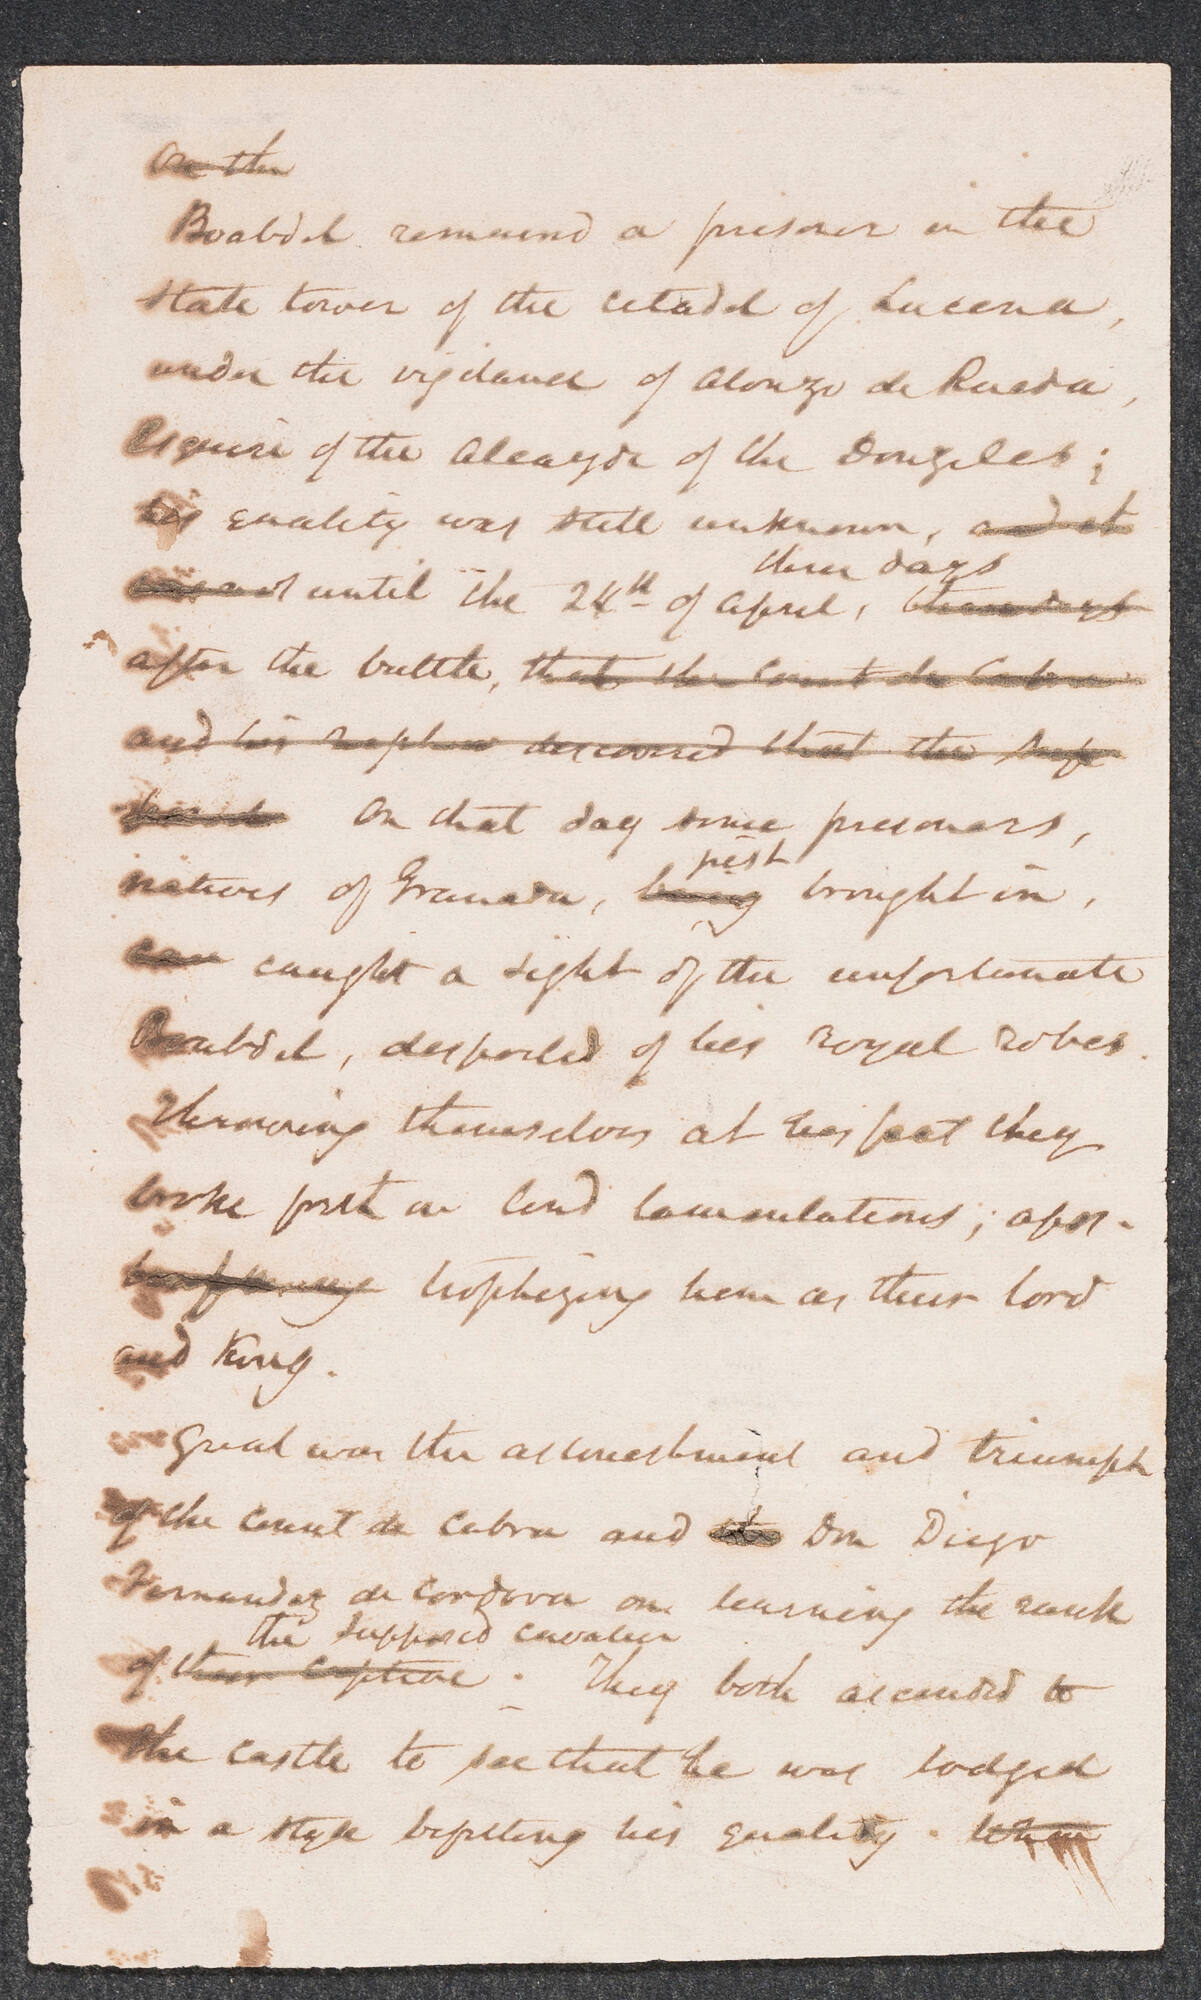 On the
Boabdil remained a prisoner in the
state tower of the citadel of Lucena,
under the vigilance of Alonzo de Rueda,
Esquire of the Alcayde of the Donzeles;
his quality was still unknown, and it
was not until the 24th of April, three days
three days
after the battle, that the Count de Cabra
and his nephew discovered that the
On that day some prisoners,
just
natives of Granada, being brought in,
cau caught a sight of the unfortunate
Boabdil, despoiled of his royal robes.
Throwing themselves at his feet they
broke forth in loud lamentations; apos-
trophizing him as their lord
and King.
Great was the astonishment and triumph
of the Count de Cabra and the Don Diego
Fernandez de Cordova on learning the rank
the supposed cavalier
of their captive. They both ascended to
the castle to see that he was lodged
in a style befitting his quality. When